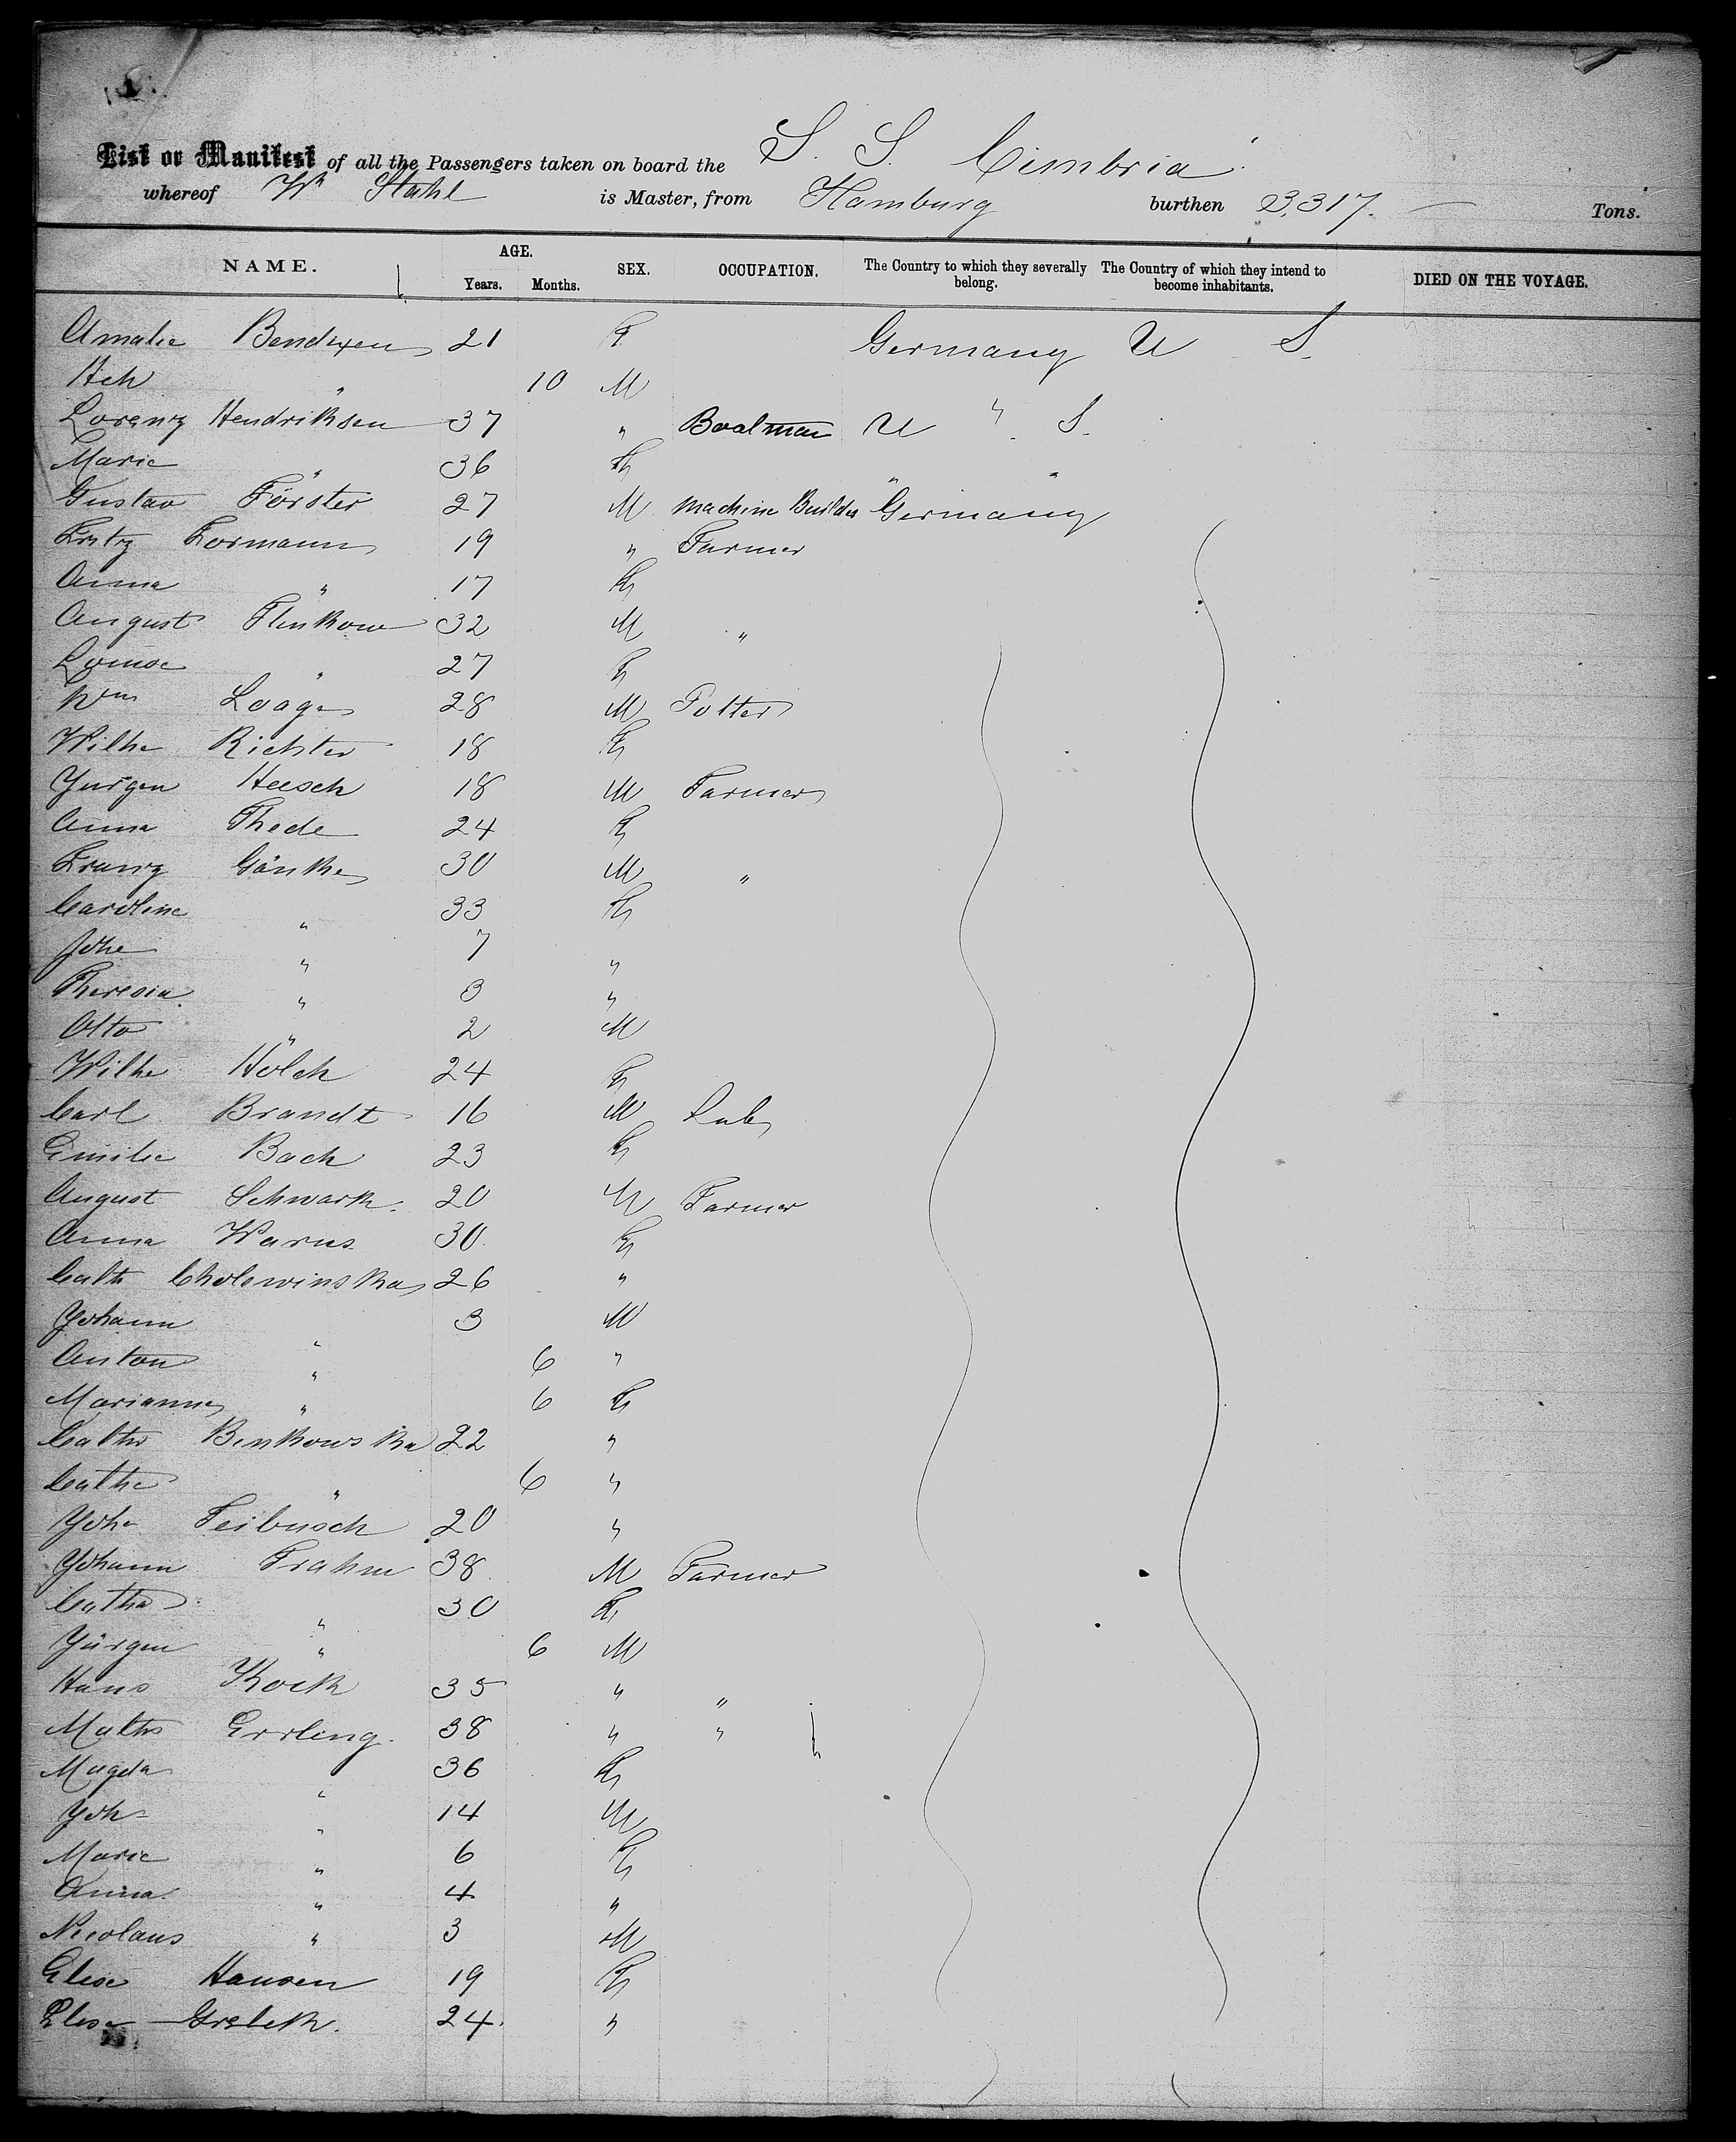 List or Manifest of all the Passengers taken on board the S. S. Cimbria
whereof Wm Stahl is Master, from Hamburg burthen 3,317. Tons.
NAME. AGE. Years. Months. SEX. OCCUPATION. The Country to which they severally belong. The Country of which they intend to become inhabitants. DIED ON THE VOYAGE.
Amalie Bendixen 21 F Germany U S.
Hch " 10 M
Lorenz Hendriksen 37 " Boatman U " S.
Marie " 36 F " "
Gustav Förster 27 M Machine Builder Germany
Fritz Formann 19 " Farmer
Anna " 17 F
August Flinkow 32 M "
Louise " 27 F
Wm Laage 28 M Potter
Wilhe Richter 18 F
Jurgen Heesch 18 M Farmer
Anna Thede 24 F
Franz Gänke 30 M "
Caroline " 33 F
Johe " 7 "
Theresia " 3 "
Otto " 2 M
Wilhe Hölch 24 F
Carl Brandt 16 M Lab
Emilie Bach 23 F
August Schwark. 20 M Farmer
Anna Warns 30 F
Cath Cholewinska 26 "
Johann " 3 M
Anton " 6 "
Marianne " 6 F
Cathe Binkowska 22 "
Cathe " 6 "
Johe Feibusch 20 "
Johann Frahm 38 M Farmer
Catha " 30 F
Jürgen " 6 M
Hans Kock 35 " "
Maths Errling. 38 " "
Magda " 36 F
Joh " 14 M
Marie " 6 F
Anna " 4 "
Nicolaus " 3 M
Elise Hansen 19 F
Elise 24. "